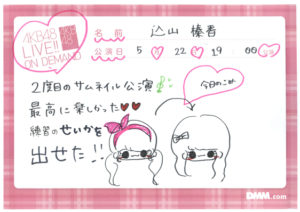 AKB48
LIVE!!
ON DEMAND
名前 込山榛香
公演日 5 22 19:00
2度目のサムネイル公演
最高に楽しかった♥♥
練習のせいかを
出せた!!
今日のこめ
DMM.com